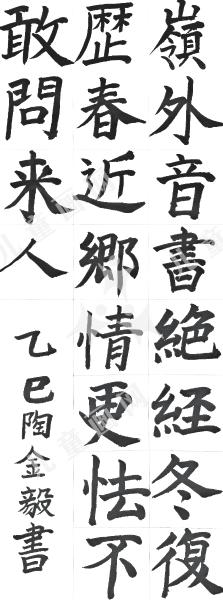 嶺外音書絶經冬復
歴春近鄉情更怯不
敢問来人
乙巳陶金毅書